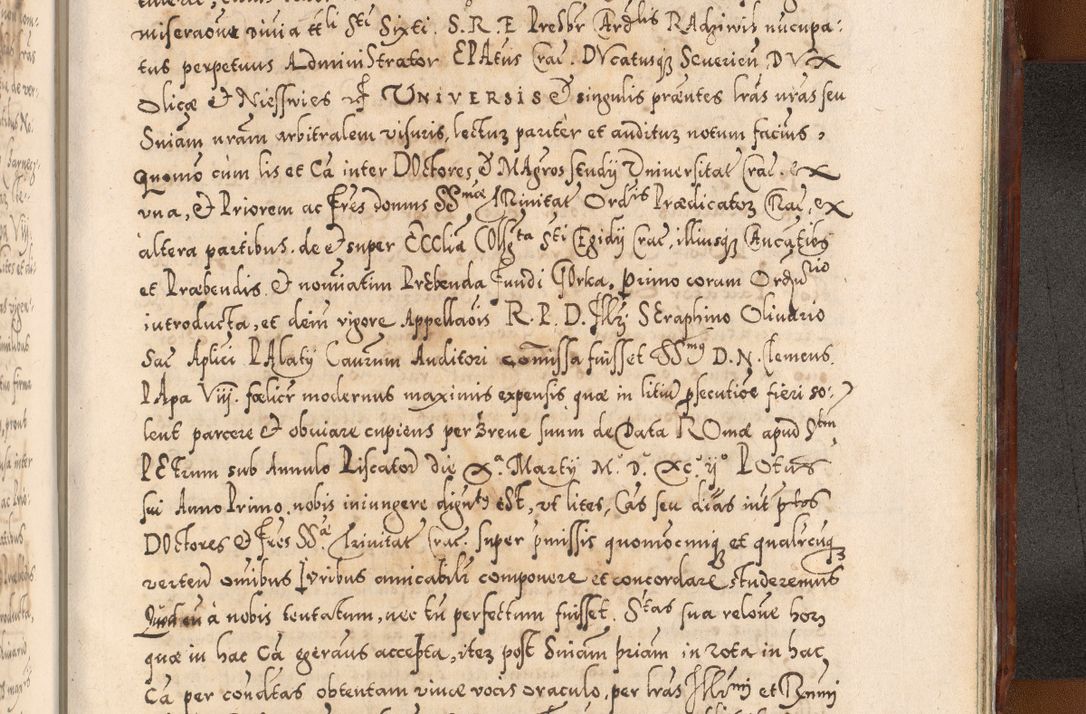 miseraoue diuia ttli Sti Sixti. S. R. E Presbr Crdlis RAdziwil nucupa-
tus perpetuus Administrator EPAtus Crac. DVcatusq3 Seuerien DVX
Olicæ et Niesswies etc UNIVERSIS et singulis præntes lras nras seu
Sniam nram arbitralem visuris, lectur pariter et auditur notum facims,
Quomo cum lis et Ca inter DOctores et MAgros studij Uniuersitat Crac. ex
vna, et Priorem ac Fres domus SSmæ Trinitat Ordis Prædicator Crac. ex
altera partibus. de et super ECCliã COllgta Sti Egidij Crac, illiusq3 Aucatibg
et Præbendis et nominatim Prebenda fundi GOrka, primo coram Ordrio
introducta, et dein vigore Appellaõis R. P. D. Illr SEraphino Oliuario
Sac Aplici PAlatij Caurum Auditori comissa fuisset SSmg D. N. Clemens
PApa Viij. fœlicr modernus maximis expensis quæ in litiu psecutioe fieri so-
lent parcere et obuiare cupiens per Breue suum de Data ROmæ apud Stm
PETrum sub Annulo Piscator die Xa. Martij M. D. XC. ijo POtus
sui Anno Primo. nobis iniungere digntg eSt, vt lites, Cas seu dias int ptos
DOctores et Fres SSæ. Trinitat Crac. super pmissis quomocunq et qualrcuq3
verten omibus Iuribus amicabilr componere et concordare studeremus
Quod eu à nobis tentatum, nec tn perfectum fuisset. Stas sua reloue hor
quæ in hac Ca geraus accepta, iter post Sniam priam in rota in hac
Ca per conditas obtentam viuæ vocis oraculo, per lras Illmi et Rmmi